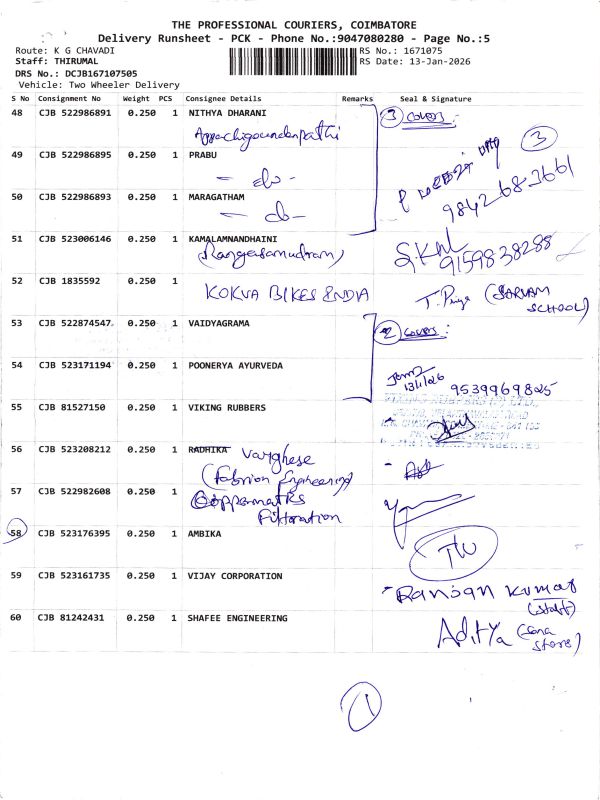 THE PROFESSIONAL COURIERS, COIMBATORE
Delivery Runsheet - PCK - Phone No.:9047080280 - Page No.:5
Route: K G CHAVADI RS No.: 1671075
Staff: THIRUMAL RS Date: 13-Jan-2026
DRS No.: DCJB167107505
Vehicle: Two Wheeler Delivery
S No Consignment No Weight PCS Consignee Details Remarks Seal & Signature
48 CJB 522986891 0.250 1 NITHYA DHARANI 3 covers:
Appachigoundenpathi 3
49 CJB 522986895 0.250 1 PRABU
- do - 9842683661
50 CJB 522986893 0.250 1 MARAGATHAM
- do -
51 CJB 523006146 0.250 1 KAMALAMNANDHAINI
(Rangasamudram) 9159838288
52 CJB 1835592 0.250 1
KOKVA BIKES INDIA T. Priya (SARVAM SCHOOL)
53 CJB 522874547 0.250 1 VAIDYAGRAMA 2 covers:
54 CJB 523171194 0.250 1 POONERYA AYURVEDA
13/1/26 9539969825
55 CJB 81527150 0.250 1 VIKING RUBBERS
56 CJB 523208212 0.250 1 RADHIKA Varghese
(Fabrion Engineering)
57 CJB 522982608 0.250 1 Coppermatks
Filtoration
58 CJB 523176395 0.250 1 AMBIKA
59 CJB 523161735 0.250 1 VIJAY CORPORATION
Ranjan Kumar
(staff)
60 CJB 81242431 0.250 1 SHAFEE ENGINEERING
Aditya (Sona Store)
1